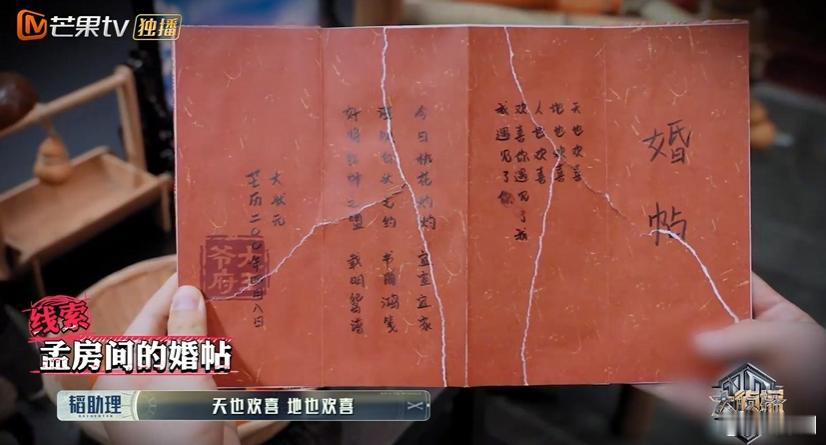 芒果tv 独播
婚帖
天也欢喜
地也欢喜
人也欢喜
欢喜你遇见了我
我遇见了你
今日桃花灼灼 宜室宜家
谨以白头之约 书向鸿笺
好将红叶之盟 载明鸳谱
大状元
芒历二〇〇年四月八日
爷府
线索
孟房间的婚帖
韬助理 天也欢喜 地也欢喜
大侦探